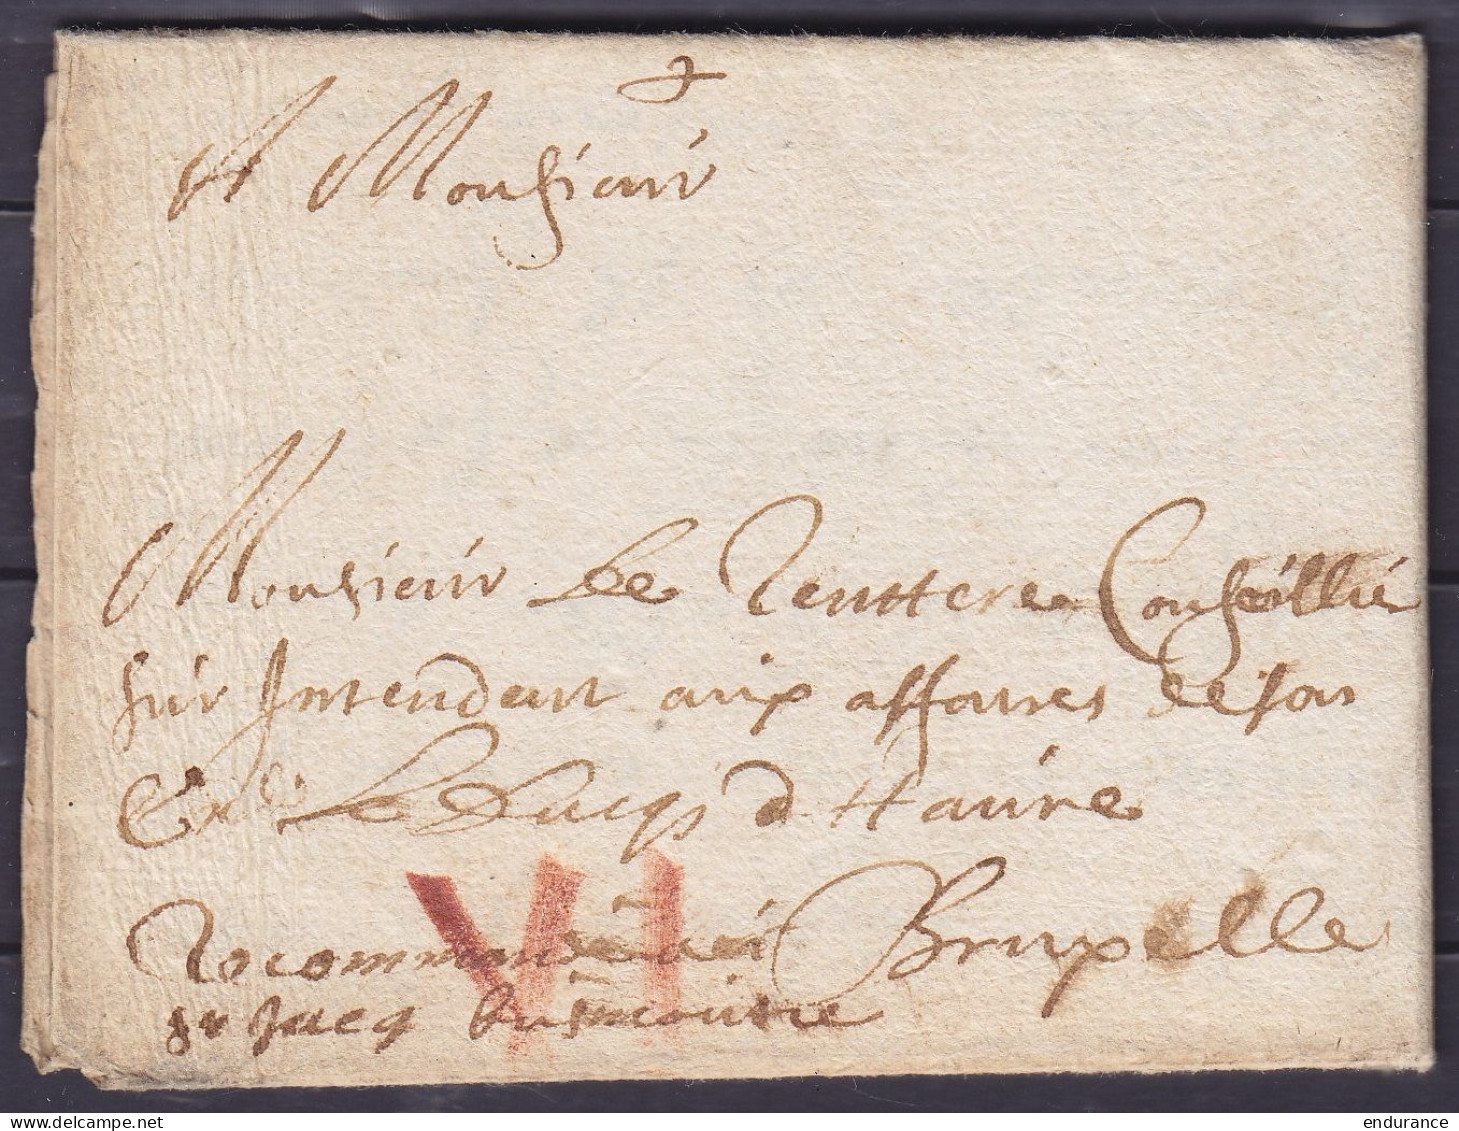 A Monsieur
Monsieur de Renttere Conseillié
sur Intendant aux affaires de son
Ex: le Ducq d Havre
VI
Recommandé Bruxelle
sr Jacq
delcampe.net
endurance